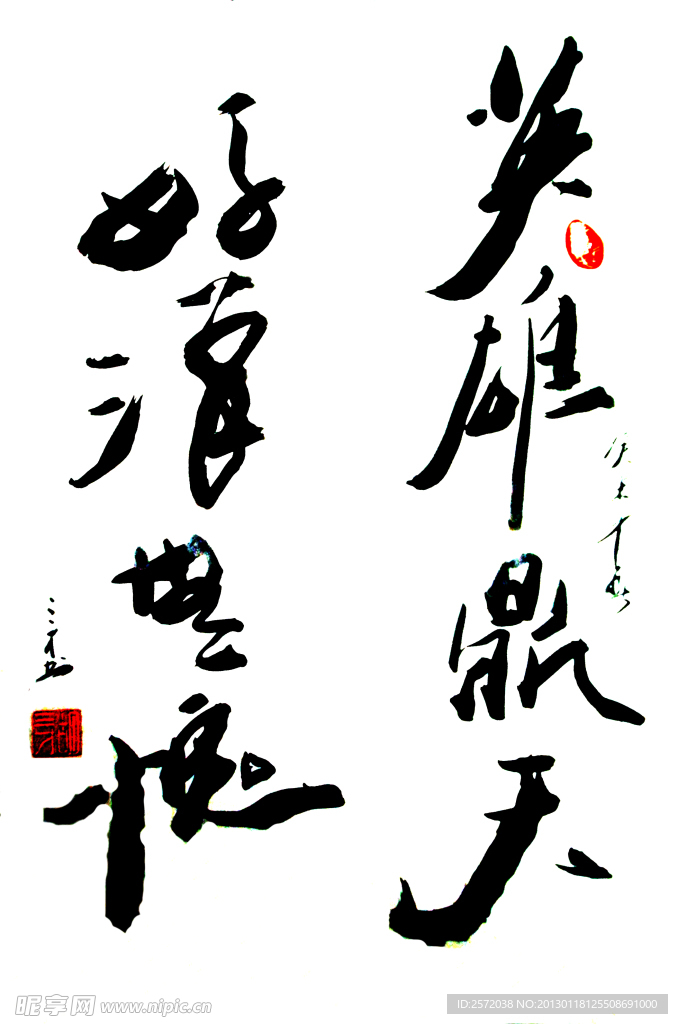 英雄鼎天
好汉无愧
昵享网 www.nipic.cn
ID:2572038 NO:20130118125508691000